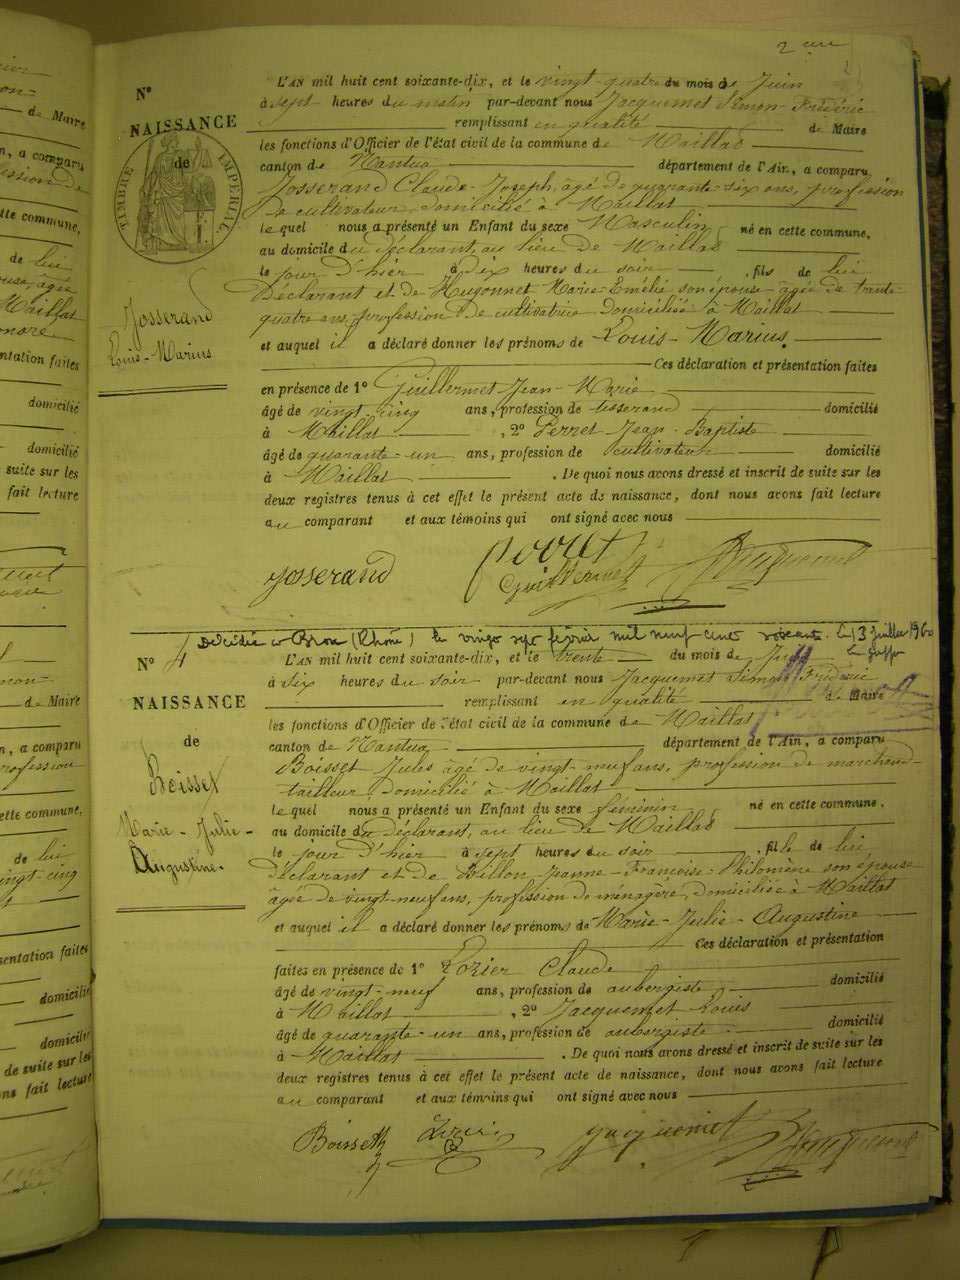 2
N°
NAISSANCE
de
TIMBRE IMPERIAL
Josserand
Louis-Marius
L'AN mil huit cent soixante-dix, et le vingt-quatre du mois de Juin
à sept heures du matin par-devant nous Jacquemet Simon-Frédéric
remplissant en qualité de Maire
les fonctions d'Officier de l'état civil de la commune de Maillat
canton de Nantua département de l'Ain, a comparu
Josserand Claude-Joseph, âgé de quarante-six ans, profession
de cultivateur, domicilié à Maillat
le quel nous a présenté un Enfant du sexe Masculin né en cette commune,
au domicile du déclarant, au lieu de Maillat
le jour d'hier à dix heures du soir, fils de lui
déclarant et de Hugonnet Marie-Emélie son épouse âgée de trente-
quatre ans, profession de cultivatrice domiciliée à Maillat
et auquel il a déclaré donner les prénoms de Louis-Marius.
Ces déclaration et présentation faites
en présence de 1° Guillermet Jean-Marie
âgé de vingt-cinq ans, profession de tisserand domicilié
à Maillat, 2° Perret Jean-Baptiste
âgé de quarante-un ans, profession de cultivateur domicilié
à Maillat. De quoi nous avons dressé et inscrit de suite sur les
deux registres tenus à cet effet le présent acte de naissance, dont nous avons fait lecture
au comparant et aux témoins qui ont signé avec nous
Josserand
Guillermet
Jacquemet
Décédée à Bron (Rhône) le vingt sept février mil neuf cent soixante. le 13 Juillet 1960
N° 4
NAISSANCE
de
Boisset
Marie-Julie-
Augustine.
L'AN mil huit cent soixante-dix, et le trente du mois de
à six heures du soir par-devant nous Jacquemet Simon Frédéric
remplissant en qualité de Maire
les fonctions d'Officier de l'état civil de la commune de Maillat
canton de Nantua département de l'Ain, a comparu
Boisset Jules âgé de vingt-neuf ans, profession de marchand-
tailleur, domicilié à Maillat
le quel nous a présenté un Enfant du sexe féminin né en cette commune,
au domicile du déclarant, au lieu de Maillat
le jour d'hier à sept heures du soir, fille de lui
déclarant et de Billon Jeanne-Françoise-Philomène son épouse
âgée de vingt-neuf ans, profession de ménagère, domiciliée à Maillat
et auquel il a déclaré donner les prénoms de Marie-Julie-Augustine
Ces déclaration et présentation
faites en présence de 1° Lozier Claude
âgé de vingt-neuf ans, profession de aubergiste domicilié
à Maillat, 2° Jacquemet Louis
âgé de quarante-un ans, profession de aubergiste domicilié
à Maillat. De quoi nous avons dressé et inscrit de suite sur les
deux registres tenus à cet effet le présent acte de naissance, dont nous avons fait lecture
au comparant et aux témoins qui ont signé avec nous
Boisset
Jacquemet
Jacquemet